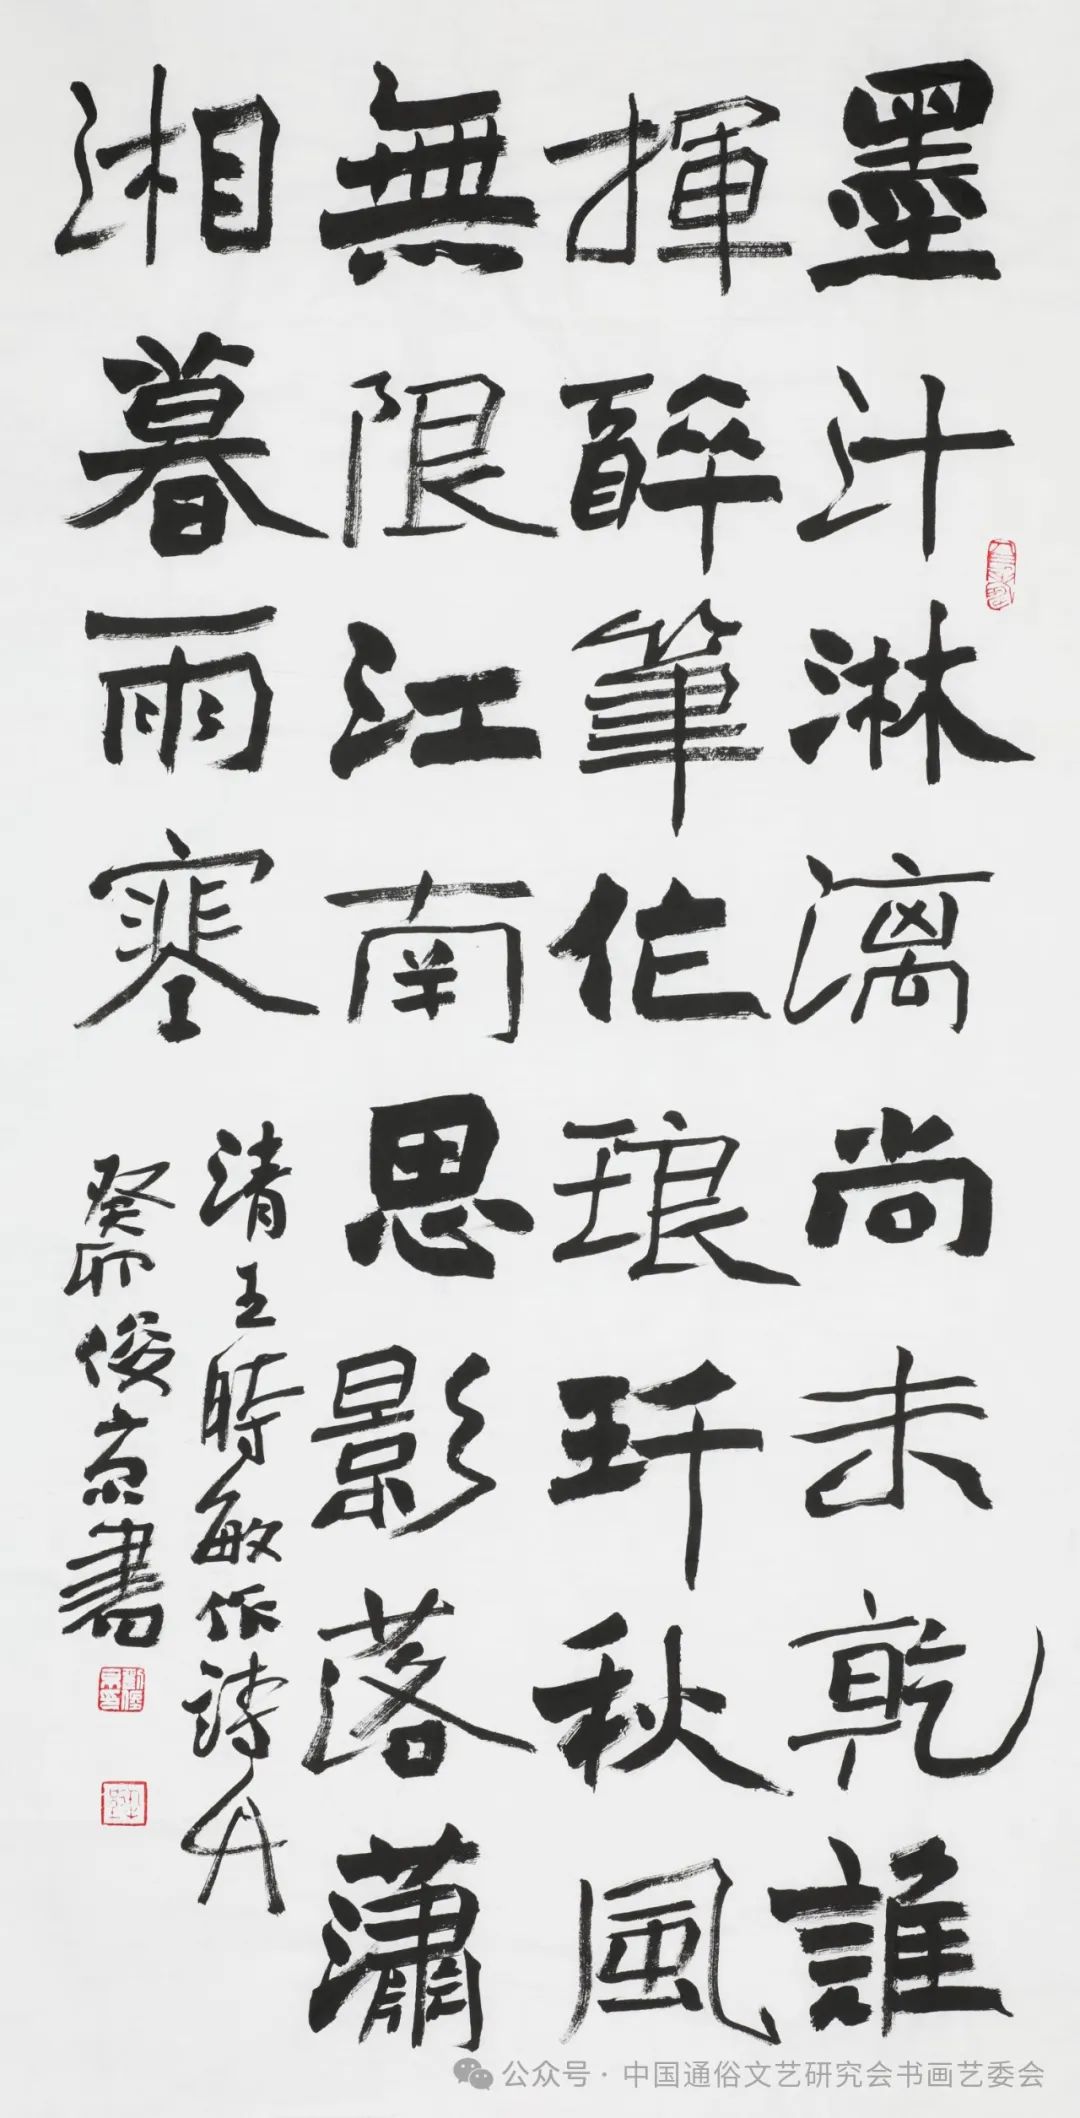 墨汁淋漓尚未乾誰
揮醉筆作琅玕秋風
無限江南思影落瀟
湘暮雨寒
清王時敏作詩
癸卯俊京書
公众号·中国通俗文艺研究会书画艺委会